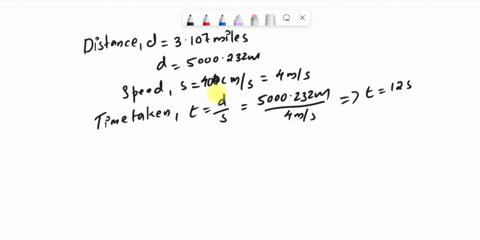 Distance, d = 3.107 miles
d = 5000.232m
Speed, s = 400 cm/s = 4 m/s
Time taken, t = d/s = 5000.232m/4 m/s => t = 12s